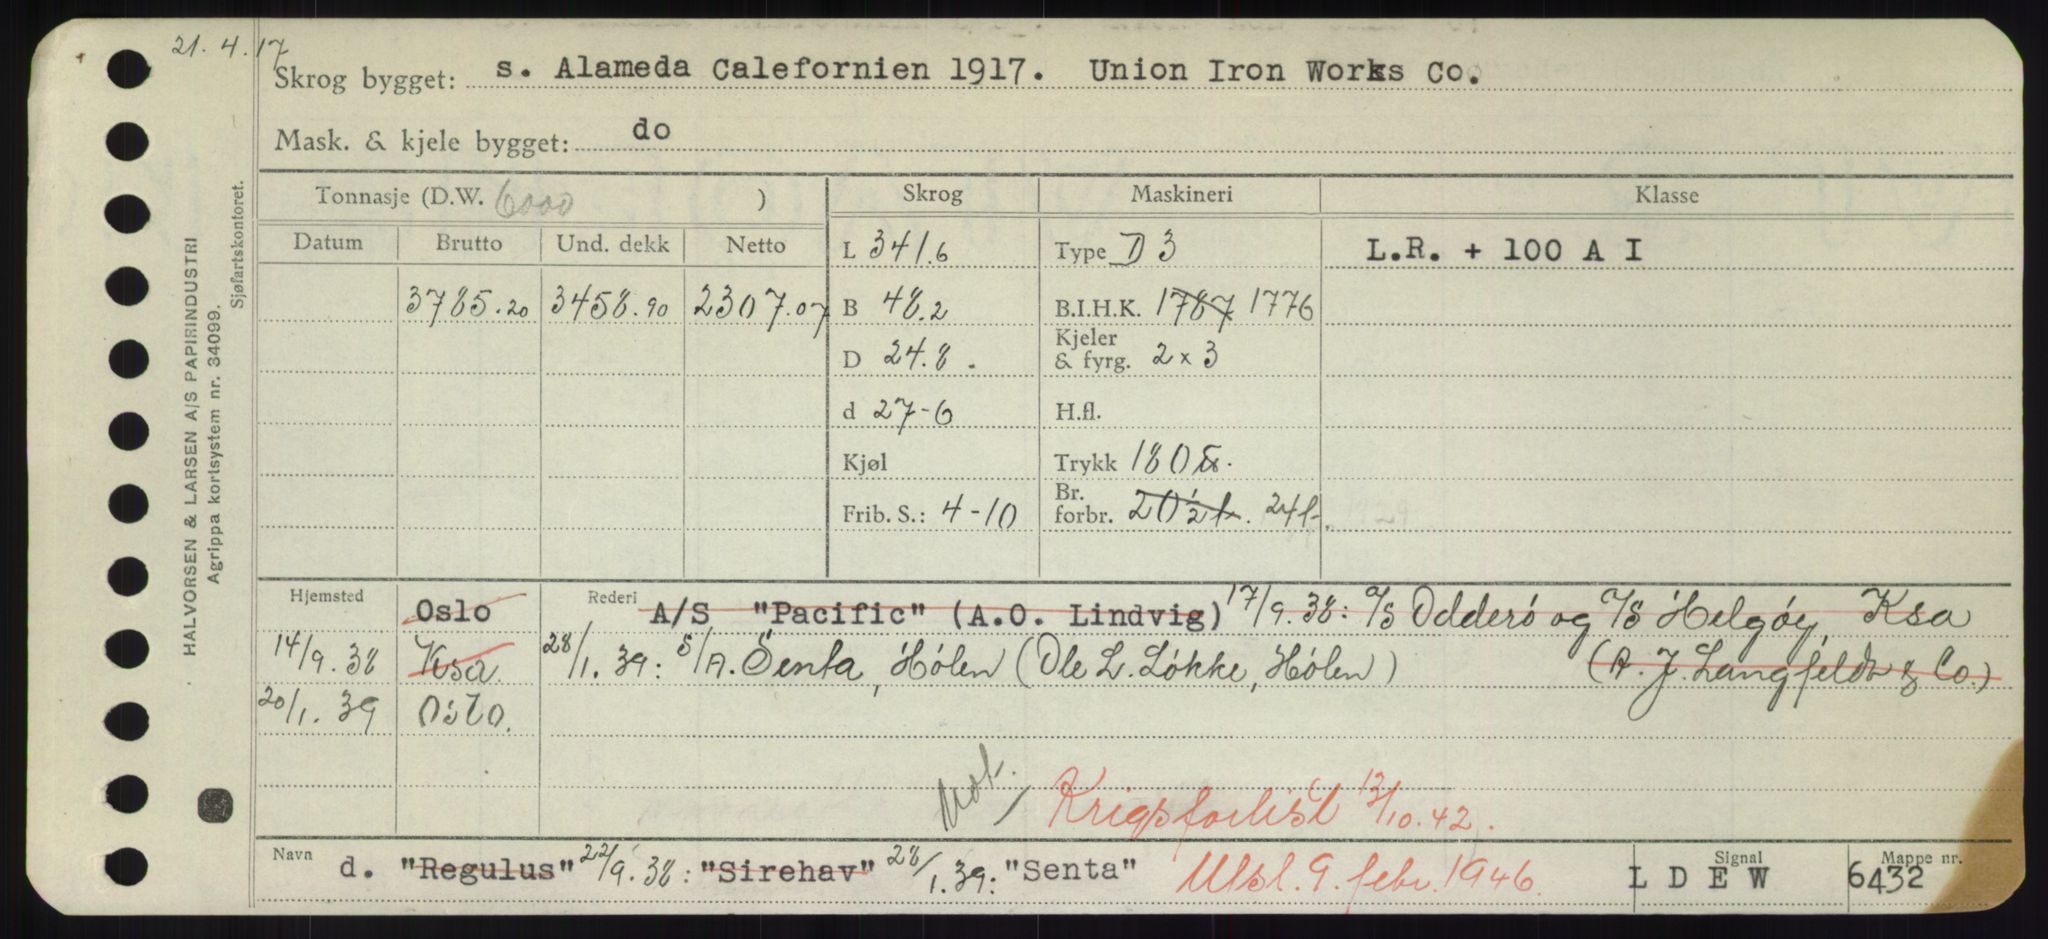 21.4.17
Skrog bygget: s. Alameda Calefornien 1917. Union Iron Works Co.
Mask. & kjele bygget: do
Tonnasje (D.W. 6000 ) Skrog Maskineri Klasse
Datum Brutto Und. dekk Netto L 341.6 Type D 3 L.R. + 100 A I
3785.20 3458.90 2307.07 B 48.2 B.I.H.K. 1787 1776
D 24.8. Kjeler & fyrg. 2 x 3
d 27-6 H.fl.
Kjøl Trykk 180
Frib. S.: 4-10 Br. forbr. 20 1/2 t. 24 t. 1929
Hjemsted Oslo Rederi A/S "Pacific" (A.O. Lindvig) 17/9.38: A/S Odderö og A/S Helgøy, Ksa
14/9.38 Ksa 28/1.39: S/A. Senta, Hölen (Ole L. Løkke, Hölen) (A. J. Langfeldt & Co.)
20/1.39 Oslo.
Not. Krigsforlist 13/10.42.
Navn d. "Regulus" 22/9.38: "Sirehav" 28/1.39: "Senta" Utsl. 9. febr. 1946. Signal L D E W Mappe nr. 6432
HALVORSEN & LARSEN A/S PAPIRINDUSTRI
Agrippa kortsystem nr. 34099.
Sjøfartskontoret.